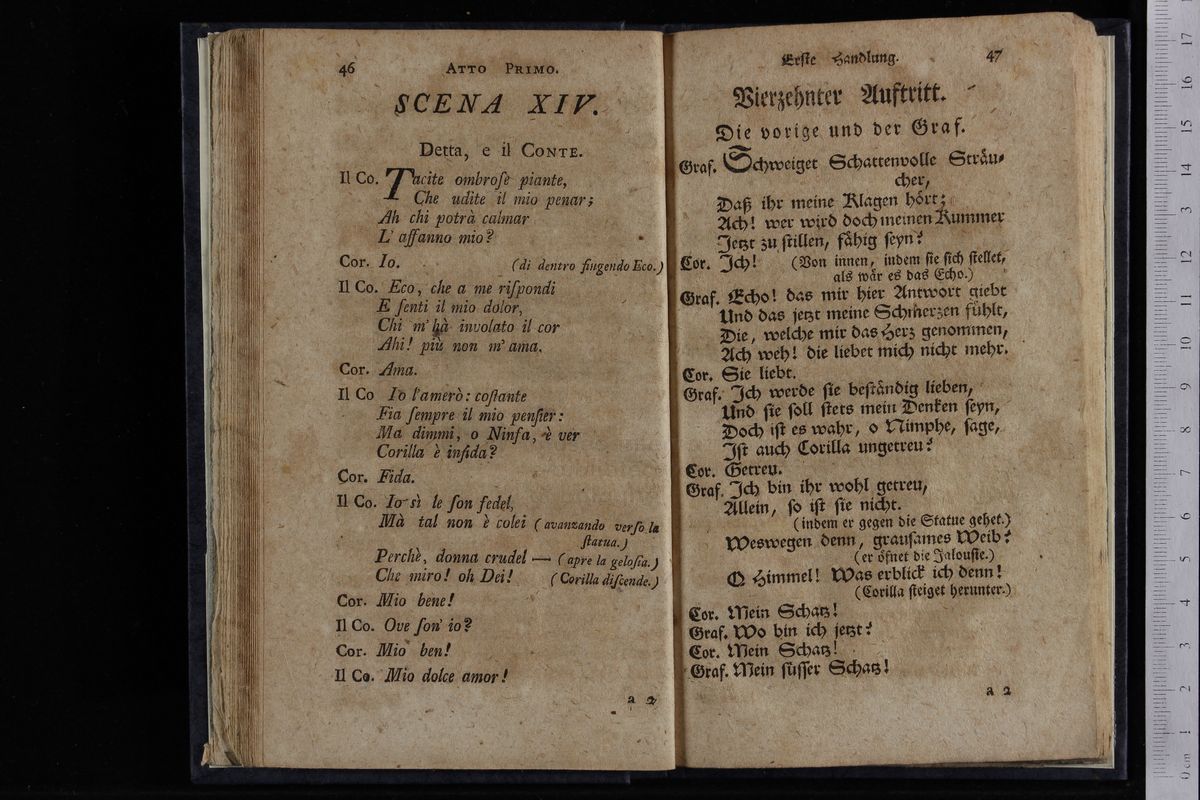 46 ATTO PRIMO.
SCENA XIV.
Detta, e il CONTE.
Il Co. Tacite ombroſe piante,
Che udite il mio penar;
Ah chi potrà calmar
L' affanno mio?
Cor. Io. (di dentro fingendo Eco.)
Il Co. Eco, che a me riſpondi
E ſenti il mio dolor,
Chi m' hà involato il cor
Ahi! più non m' ama.
Cor. Ama.
Il Co Io l'amerò: coſtante
Fia ſempre il mio penſier:
Ma dimmi, o Ninfa, è ver
Corilla è infida?
Cor. Fida.
Il Co. Io sì le ſon fedel,
Mà tal non è colei (avanzando verſo la
ſtatua.)
Perchè, donna crudel — (apre la geloſia.)
Che miro! oh Dei! (Corilla diſcende.)
Cor. Mio bene!
Il Co. Ove ſon' io?
Cor. Mio ben!
Il Co. Mio dolce amor!
a 2
Erſte Handlung. 47
Vierzehnter Auftritt.
Die vorige und der Graf.
Graf. Schweiget Schattenvolle Sträu⸗
cher,
Daß ihr meine Klagen hört;
Ach! wer wird doch meinen Kummer
Jetzt zu ſtillen, fähig ſeyn?
Cor. Ich! (Von innen, indem ſie ſich ſtellet,
als wär es das Echo.)
Graf. Echo! das mir hier Antwort giebt
Und das jetzt meine Schmerzen fühlt,
Die, welche mir das Herz genommen,
Ach weh! die liebet mich nicht mehr.
Cor. Sie liebt.
Graf. Ich werde ſie beſtändig lieben,
Und ſie ſoll ſtets mein Denken ſeyn,
Doch iſt es wahr, o Nimphe, ſage,
Iſt auch Corilla ungetreu?
Cor. Getreu.
Graf. Ich bin ihr wohl getreu,
Allein, ſo iſt ſie nicht.
(indem er gegen die Statue gehet.)
Weswegen denn, grauſames Weib?
(er öfnet die Jalouſie.)
O Himmel! Was erblick ich denn!
(Corilla ſteiget herunter.)
Cor. Mein Schatz!
Graf. Wo bin ich jetzt?
Cor. Mein Schatz!
Graf. Mein ſüſſer Schatz!
a 2
0 cm 1 2 3 4 5 6 7 8 9 10 11 12 13 14 15 16 17